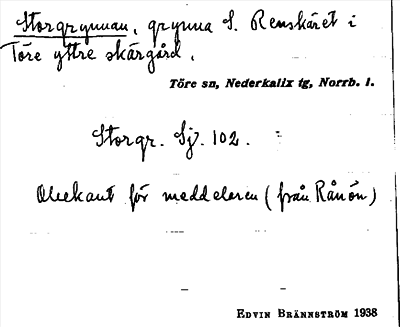 Storgrynnan, grynna S. Renskäret i
Töre yttre skärgård.
Töre sn, Nederkalix tg, Norrb. l.
Storgr. Sj. 102.
Obekant för meddelaren (från Rånön)
Edvin Brännström 1938